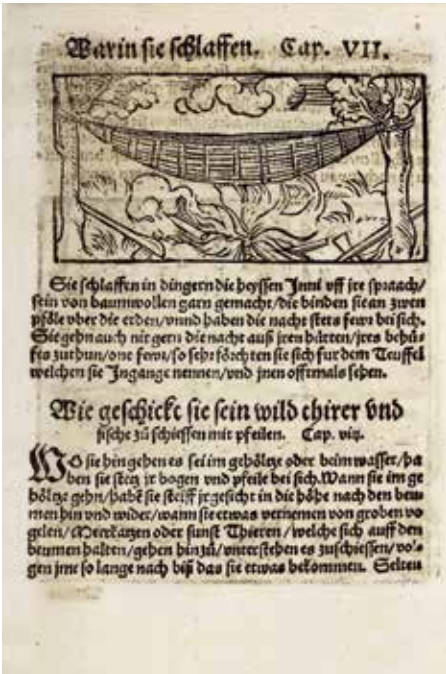 Warin sie schlaffen. Cap. VII.
Sie schlaffen in dingern die heyssen Inni uff jre spraach/
sein von baumwollen garn gemacht/die binden sie an zwen
pföle vber die erden/vnnd haben die nacht stets fewr bei sich.
Sie gehn auch nit gern die nacht auß jren hütten/jres behů-
fes zuthun/one fewr/so sehr förchten sie sich fur dem Teuffel
welchen sie Ingange nennen/vnd jnen offtmals sehen.
Wie geschickt sie sein wild thirer vnd
fische zů schiessen mit pfeilen. Cap. viij.
WO sie hin gehen es sei im gehöltze oder beim wasser/ha
ben sie stetz jr bogen vnd pfeile bei sich. Wann sie im ge
höltze gehn/habē sie steiff jr gesicht in die höhe nach den beu-
men hin vnd wider/wann sie etwas vernemen von groben vo
gelen/Meerkatzen oder sunst Thieren/welche sich auff den
beumen halten/gehen hin zů/vnterstehen es zuschiessen/vol-
gen jme so lange nach biß das sie etwas bekommen. Selten